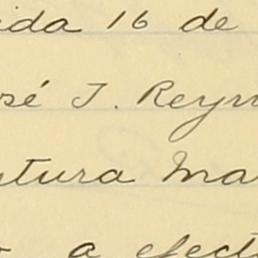 ida 16 de
sé J. Reyn
tura Ma
a efect